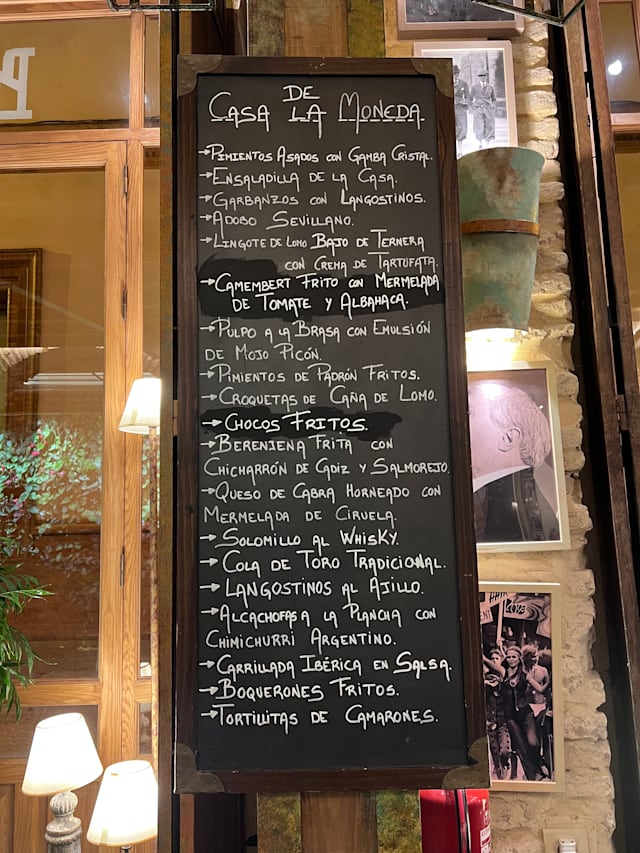 DE
CASA LA MONEDA.
→PIMIENTOS ASADOS CON GAMBA CRISTAL.
→ENSALADILLA DE LA CASA.
→GARBANZOS CON LANGOSTINOS.
→ADOBO SEVILLANO.
→LINGOTE DE LOMO BAJO DE TERNERA
CON CREMA DE TARTUFATA.
→CAMEMBERT FRITO CON MERMELADA
DE TOMATE Y ALBAHACA.
→PULPO A LA BRASA CON EMULSIÓN
DE MOJO PICÓN.
→PIMIENTOS DE PADRÓN FRITOS.
→CROQUETAS DE CAÑA DE LOMO.
→CHOCOS FRITOS.
→BERENJENA FRITA CON
CHICHARRÓN DE CADIZ Y SALMOREJO.
→QUESO DE CABRA HORNEADO CON
MERMELADA DE CIRUELA.
→SOLOMILLO AL WHISKY.
→COLA DE TORO TRADICIONAL.
→LANGOSTINOS AL AJILLO.
→ALCACHOFAS A LA PLANCHA CON
CHIMICHURRI ARGENTINO.
→CARRILADA IBÉRICA EN SALSA.
→BOQUERONES FRITOS.
→TORTILLITAS DE CAMARONES.
LOVE